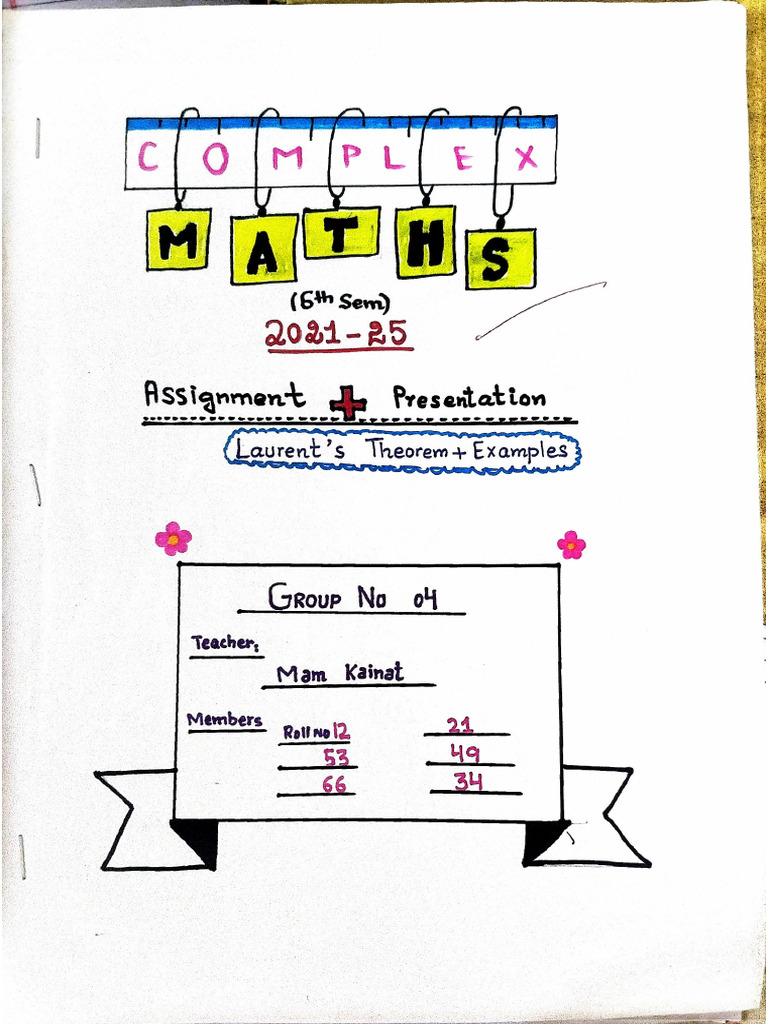 COMPLEX
MATHS
(6th Sem)
2021-25
Assignment + Presentation
Laurent's Theorem + Examples
GROUP No 04
Teacher:
Mam Kainat
Members Roll No 12 21
53 49
66 34